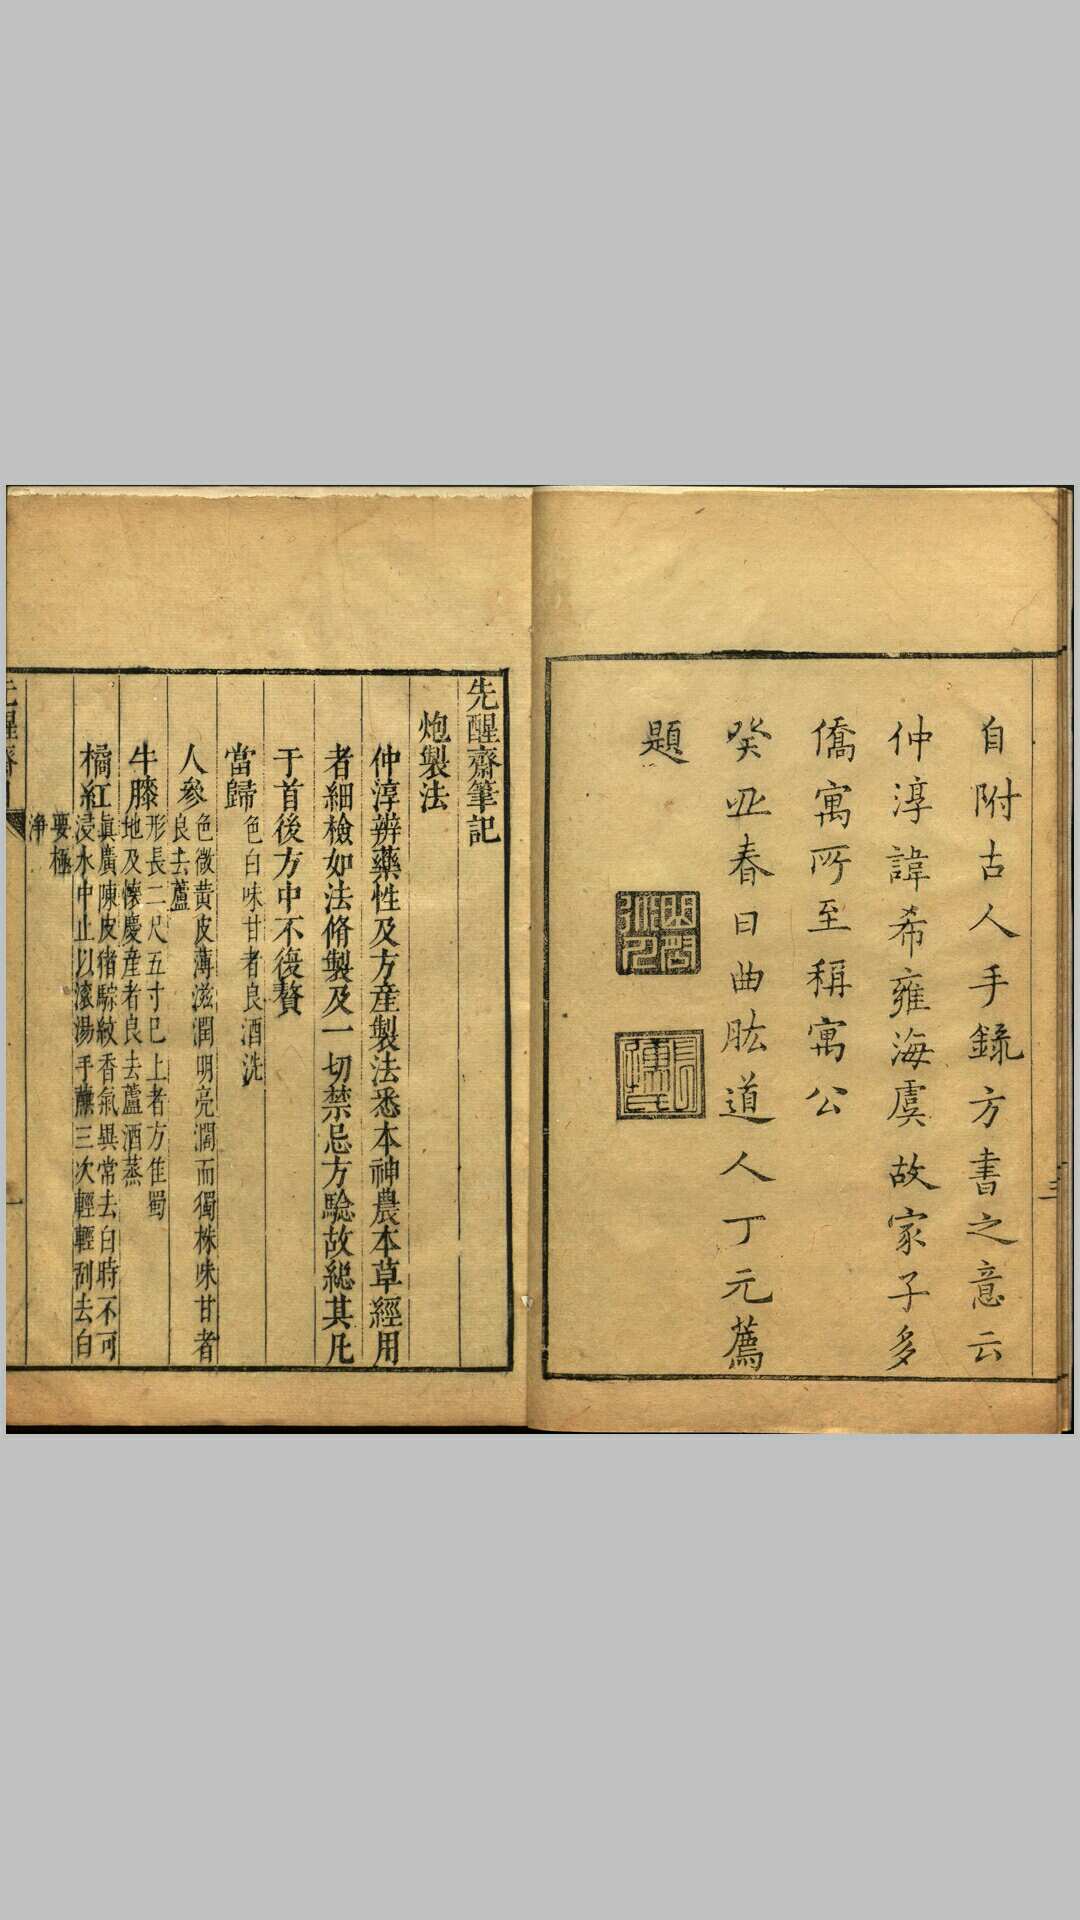 自附古人手錄方書之意云
仲淳諱希雍海虞故家子多
僑寓所至稱寓公
癸丑春日曲肱道人丁元薦
題
三
先醒齋筆記
炮製法
仲淳辨藥性及方産製法悉本神農本草經用
者細檢如法脩製及一切禁忌方驗故總其凡
于首後方中不復贅
當歸色白味甘者良酒洗
人參色微黃皮薄滋潤明亮濶而獨株味甘者
良去蘆
牛膝形長二尺五寸已上者方佳蜀
地及懷慶産者良去蘆酒蒸
橘紅眞廣陳皮猪騌紋香氣異常去白時不可
浸水中止以滚湯手蘸三次輕輕刮去白
要極
净
一